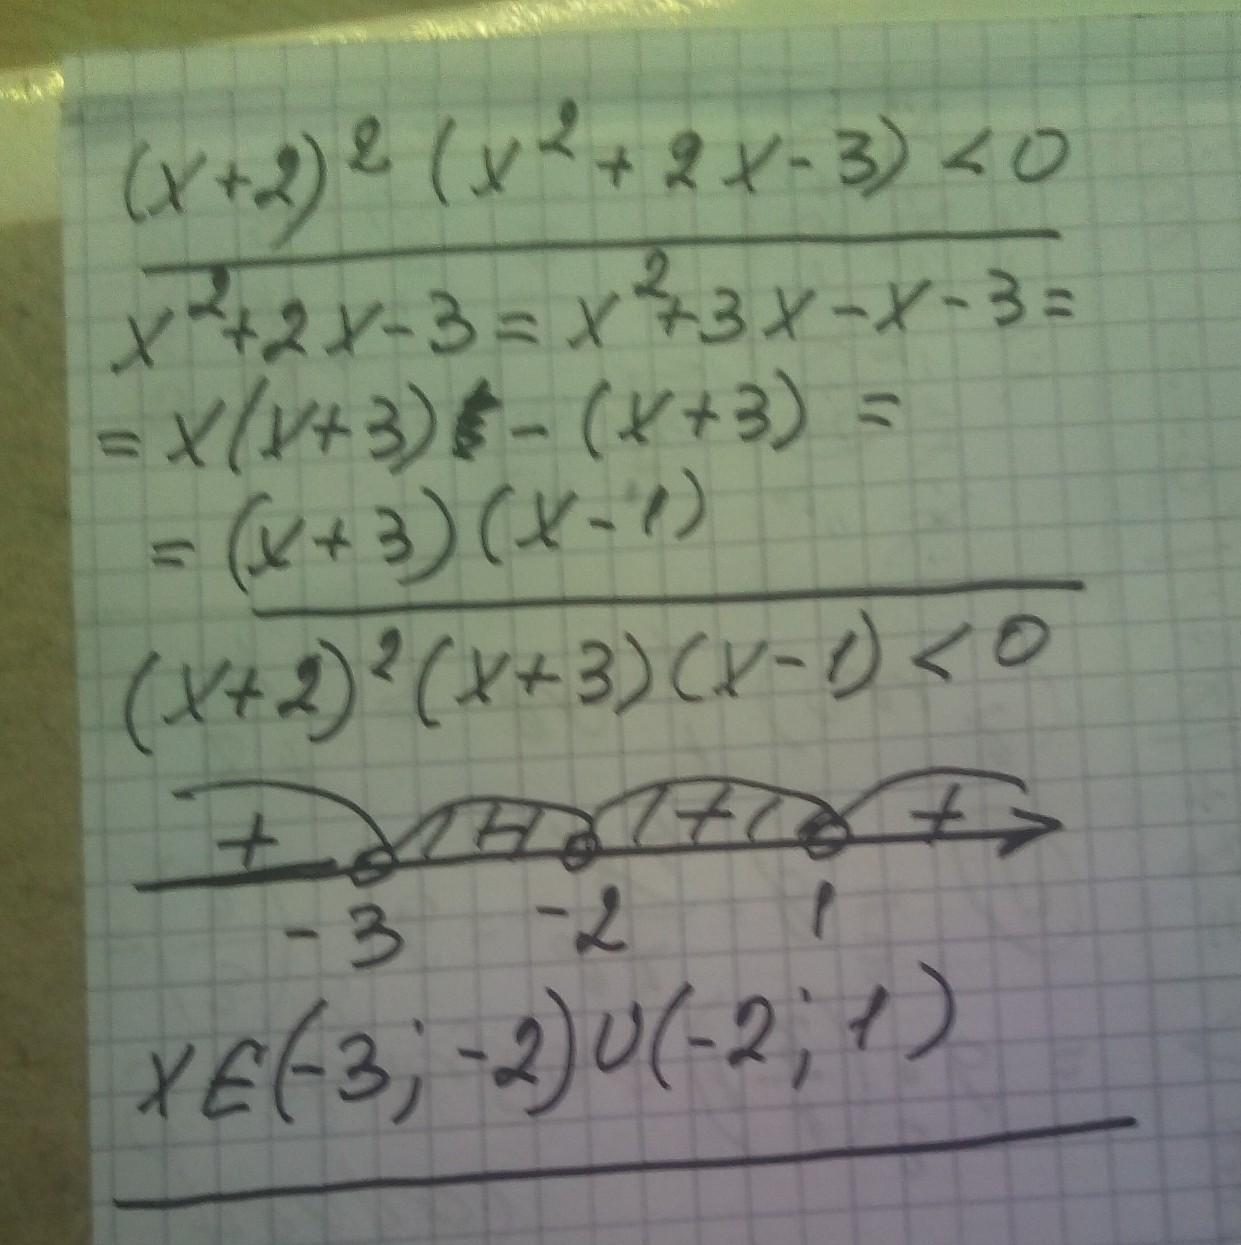 (x+2)² (x²+2x-3) < 0
x²+2x-3 = x²+3x-x-3 =
= x(x+3) - (x+3) =
= (x+3)(x-1)
(x+2)²(x+3)(x-1) < 0
+ + + +
-3 -2 1
x∈(-3; -2)∪(-2; 1)